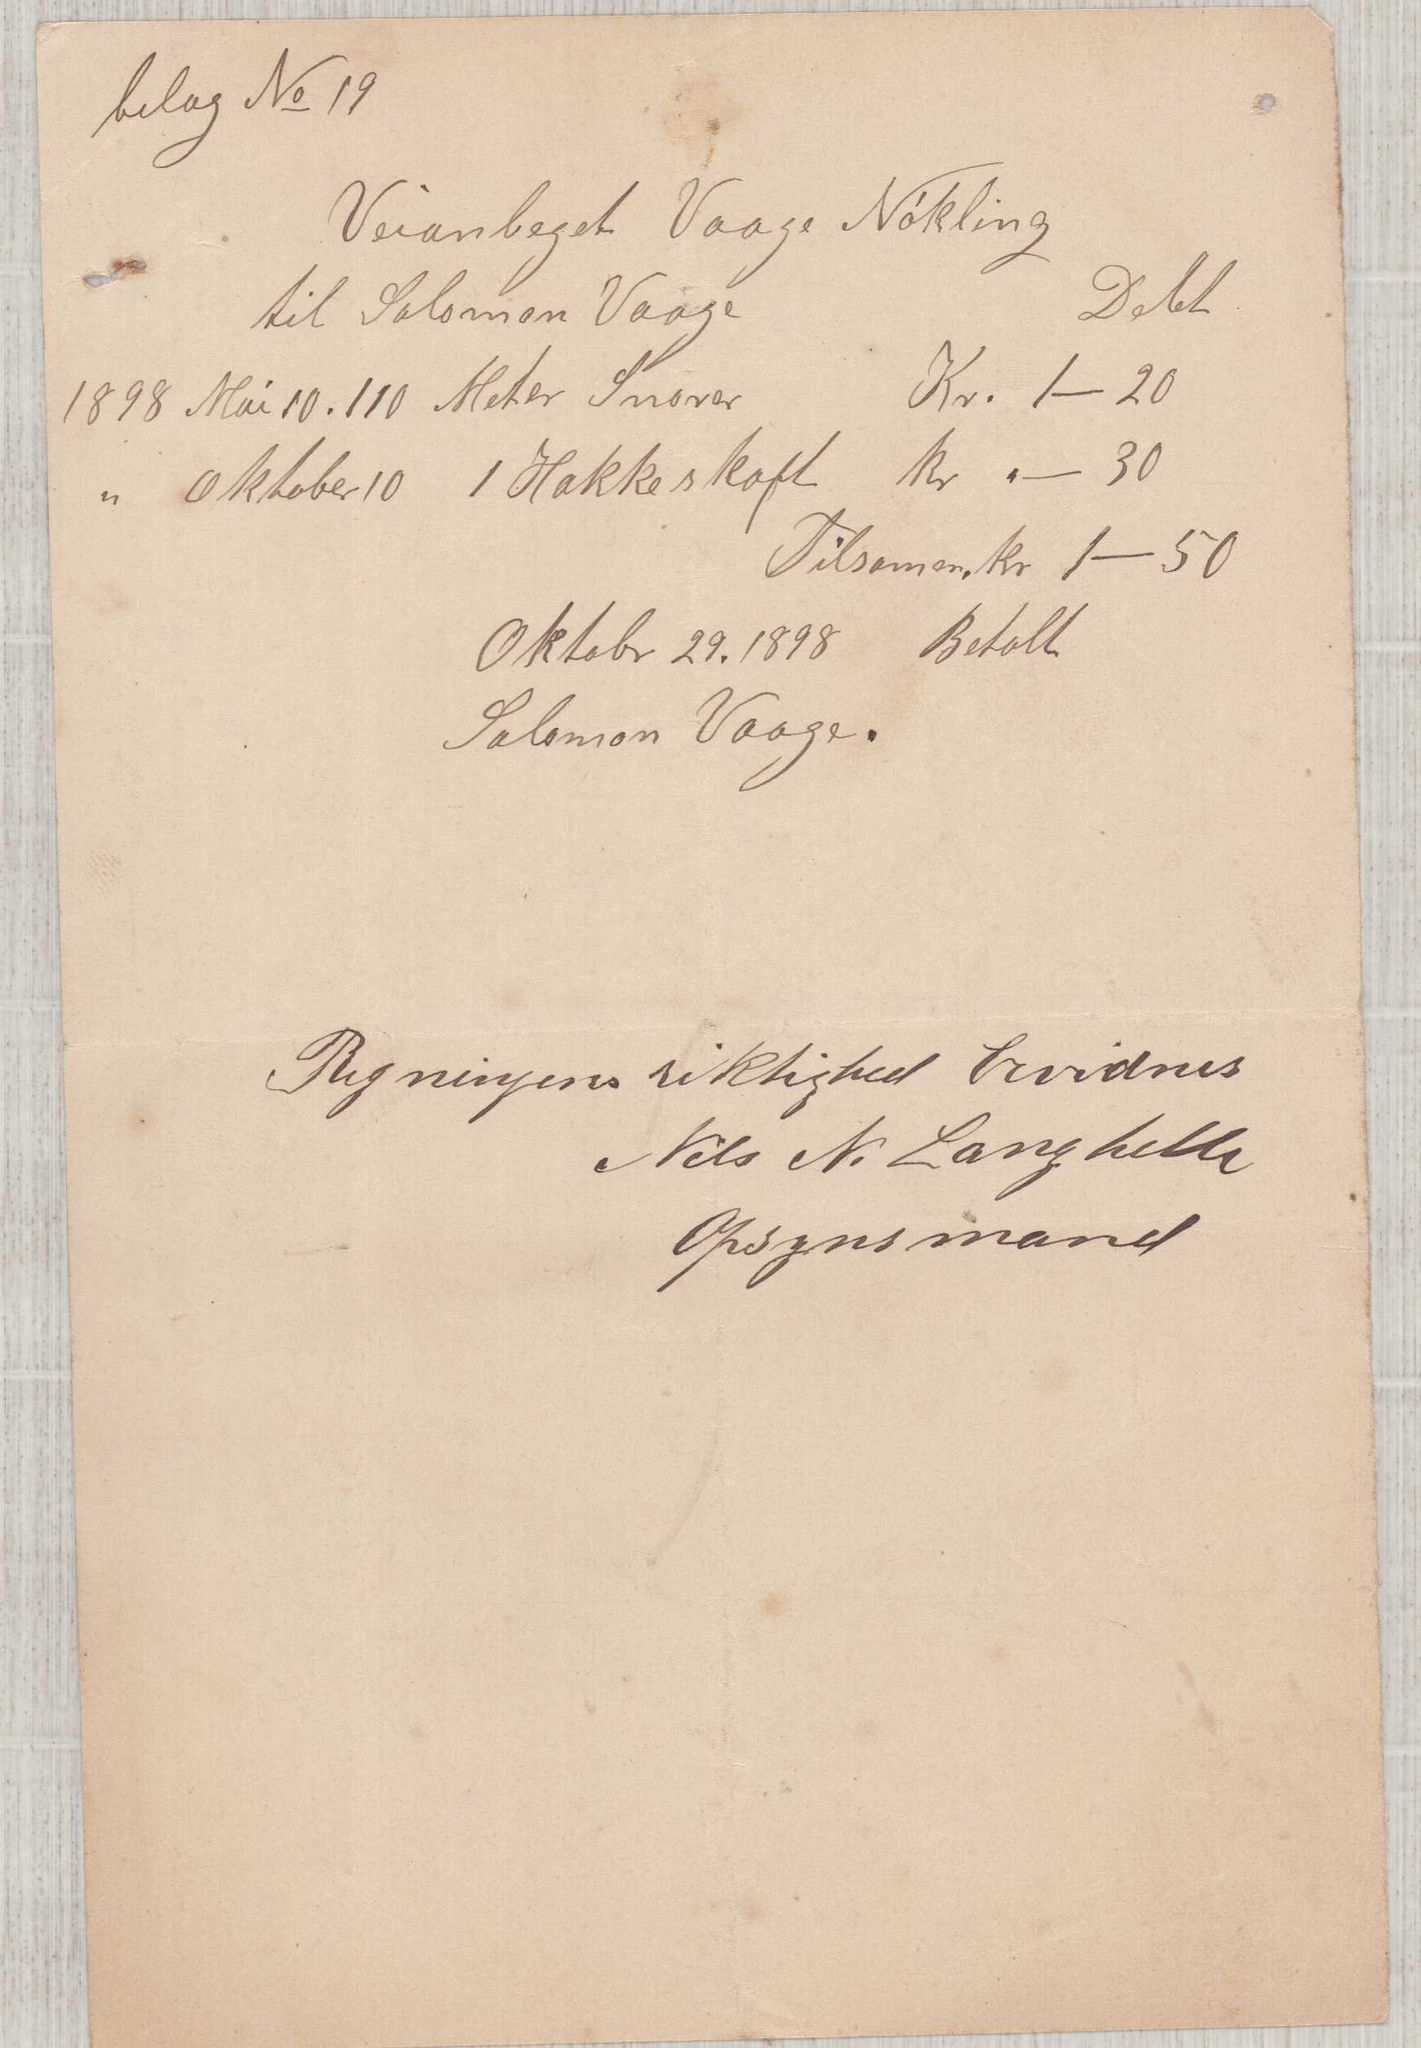 belag No 19
Veianleget Vaage Nökling
til Salomon Vaage Debt
1898 Mai 10. 110 Meter Snorer Kr. 1 — 20
" Oktober 10 1 Hakkeskaft Kr " — 30
Tilsamen. Kr 1 — 50
Oktobr 29. 1898 Betalt
Salomon Vaage.
Regningens riktighed bevidnes
Nils N. Langhelle
Opsynsmand